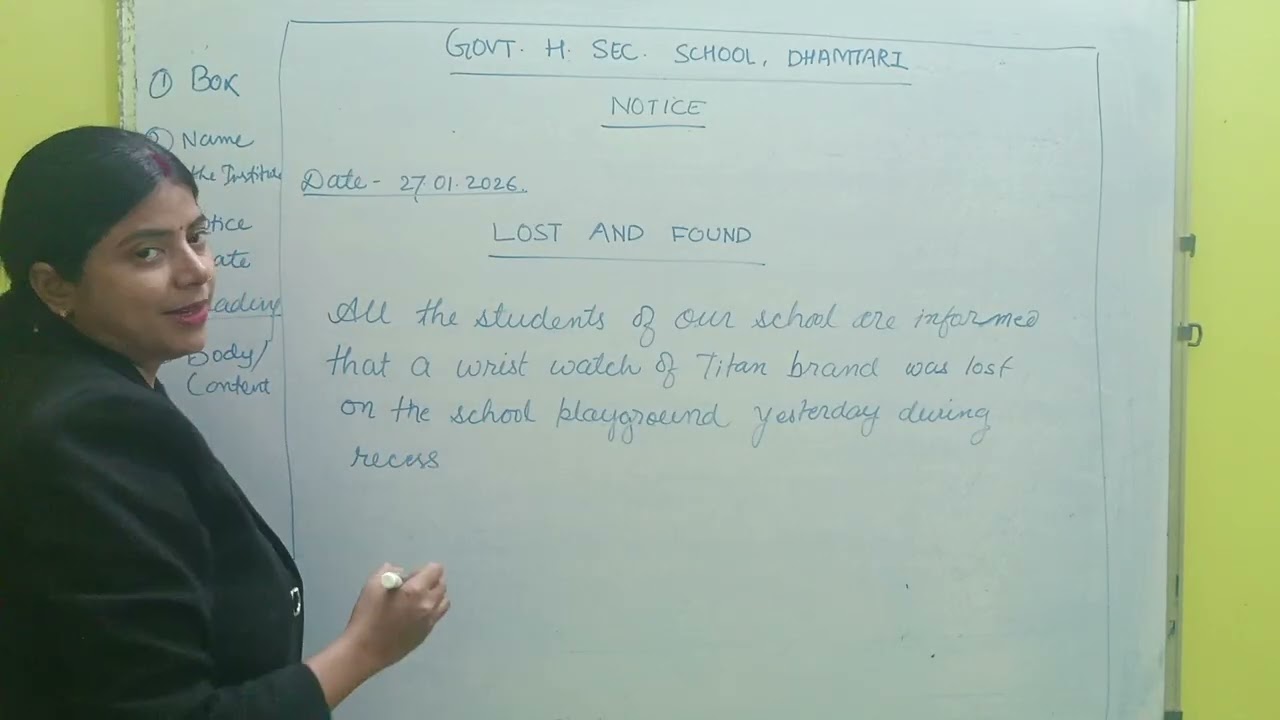 ① Box
② Name
the Institute
otice
ate
ading
Body/
Content
GOVT. H. SEC. SCHOOL, DHAMTARI
NOTICE
Date - 27.01.2026.
LOST AND FOUND
All the students of our school are informed
that a wrist watch of Titan brand was lost
on the school playground yesterday during
recess